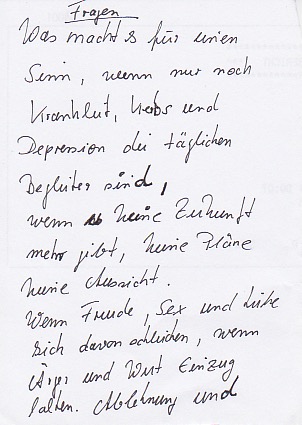 Fragen
Was macht es für einen
Sinn, wenn nur noch
Krankheit, Krebs und
Depression die täglichen
Begleiter sind,
wenn es keine Zukunft
mehr gibt, keine Pläne
keine Aussicht.
Wenn Freude, Sex und Liebe
sich davon schleichen, wenn
Ärger und Wut Einzug
halten. Ablehnung und